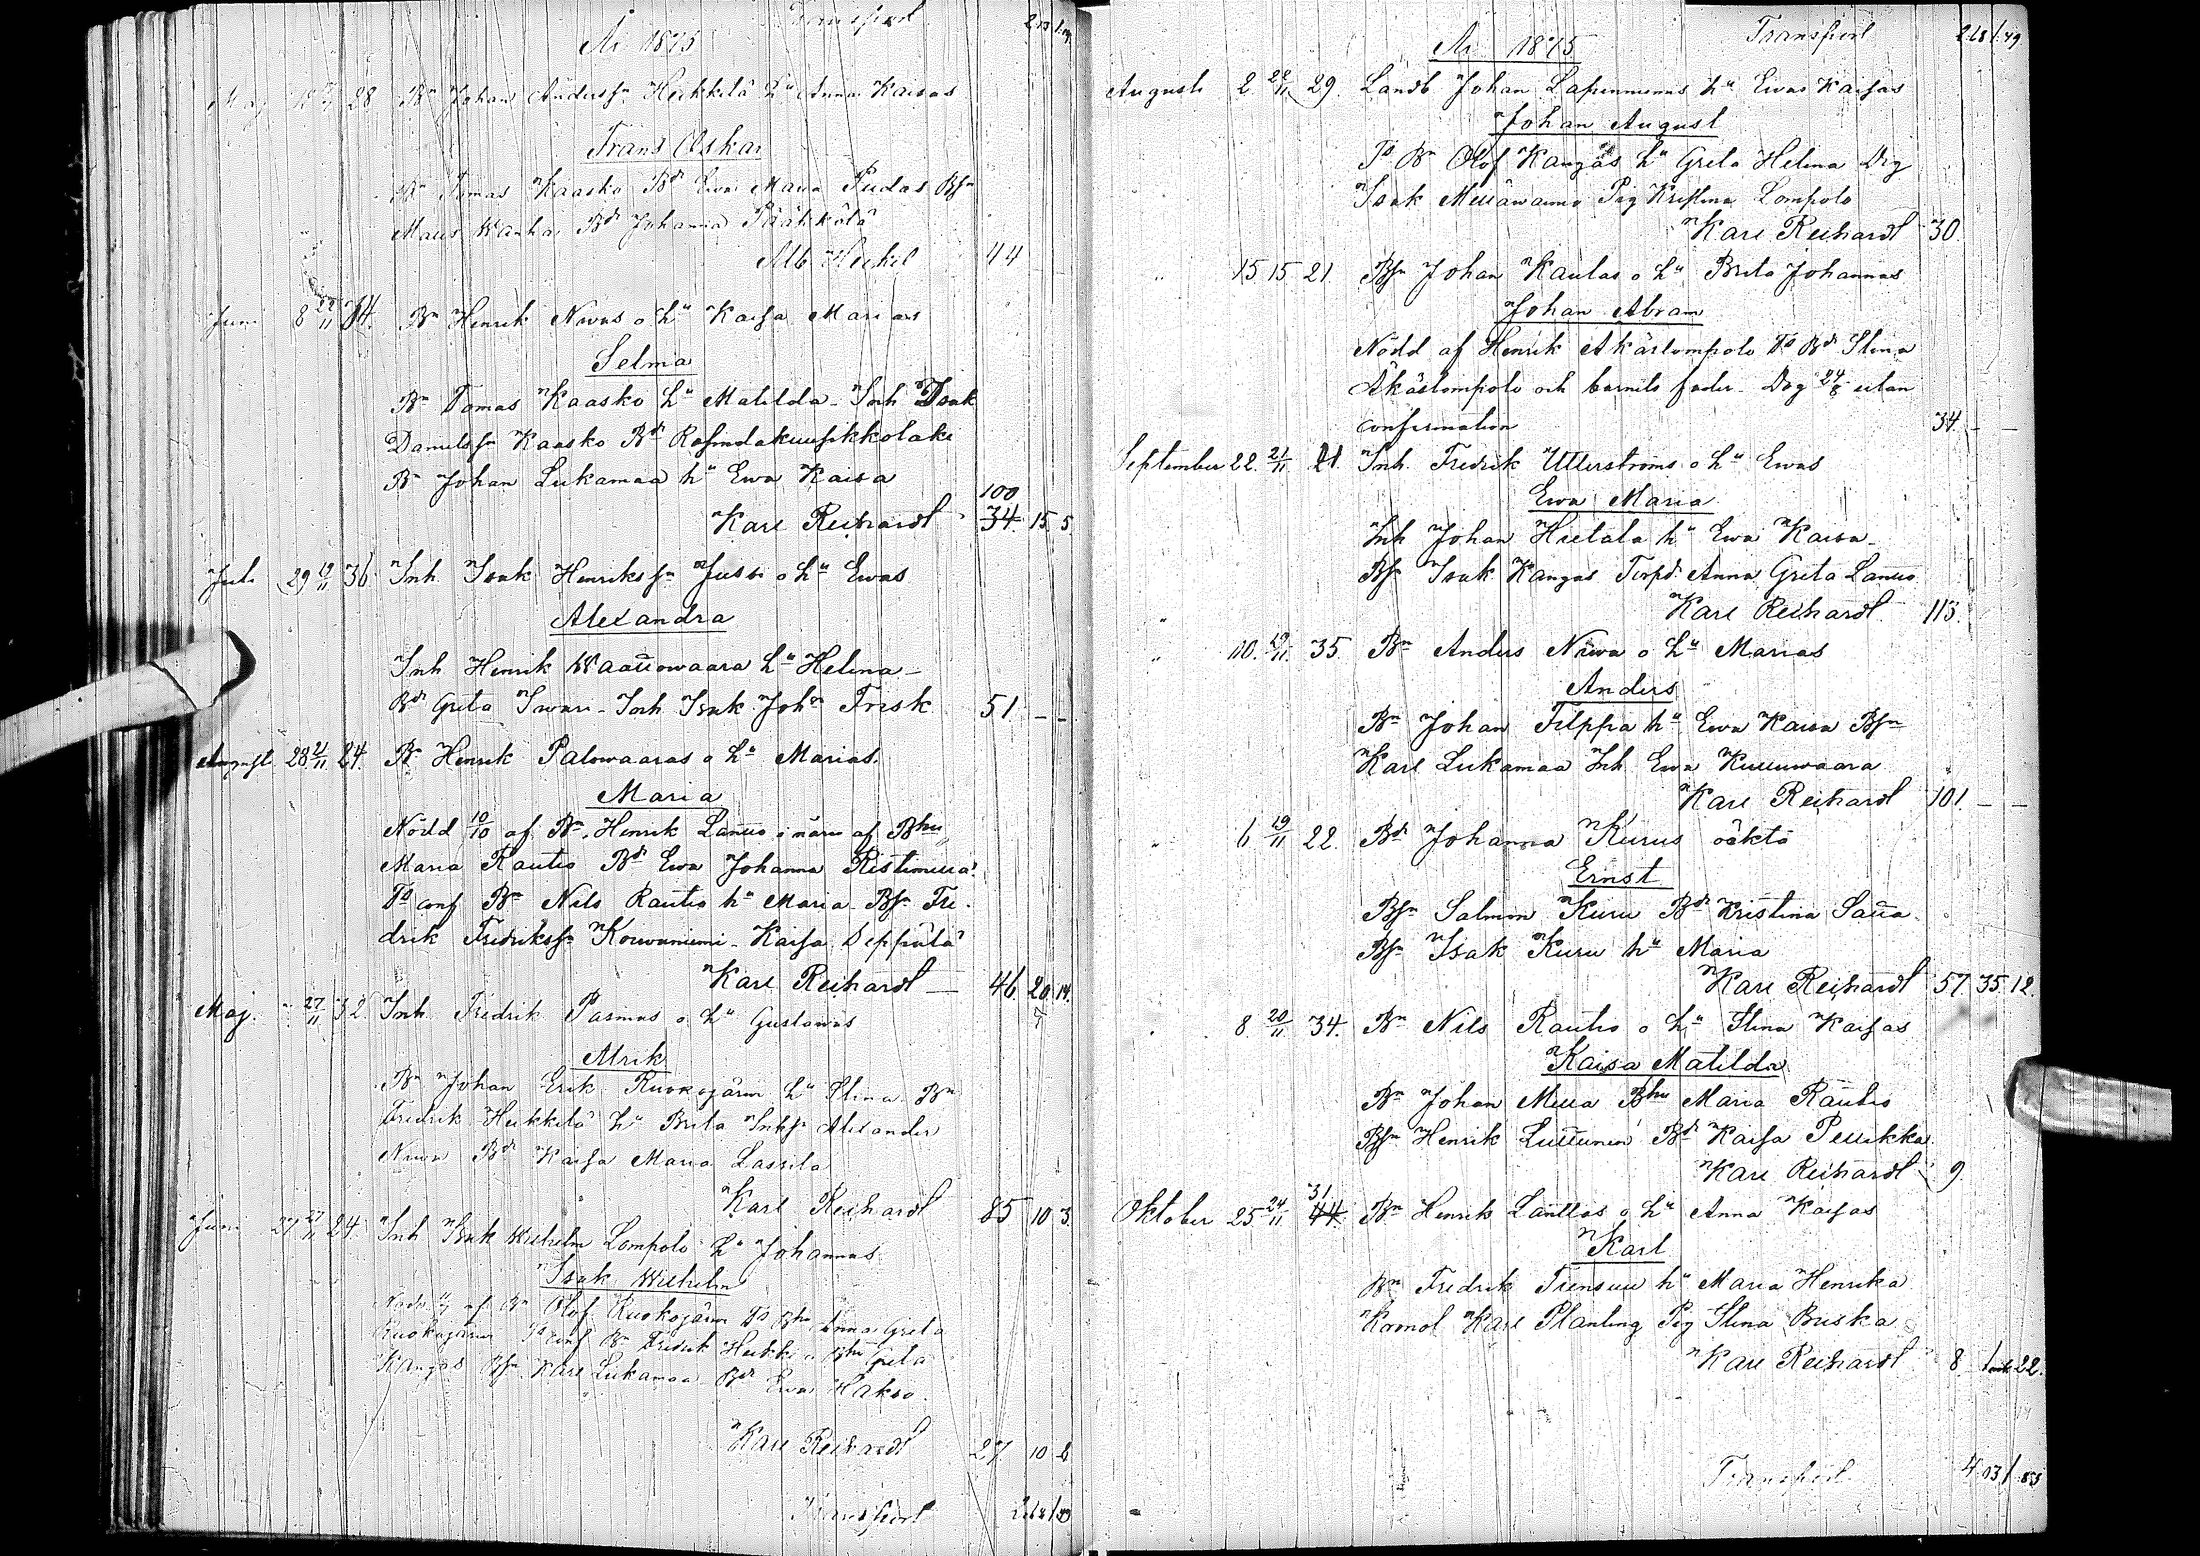 År 1875 Transport
Maj 28 Bn Johan Anderssn Heikkilä hu Anna Kaisas
Frans Oskar
Bn Tomas Kaasko Bdr Ewa Maria Pudas Bsn
Mats Wanha Bdr Johanna Päähkölä
Alb Heikel 44
Juni 8 22/11 34. Bn Henrik Niwas o hu Kaisa Marias
Selma
Bn Tomas Kaasko hu Matilda - Inh Isak
Danielssn Kaasko Bdr
Bn Johan Lukamaa hu Ewa Kaisa
100
Karl Reihardt 34. 15 5.
Juli 29 19/11 36 Inh Isak Henrikssn Jussi o hu Ewas
Alexandra
Inh Henrik Waattowaara hu Helena -
Bdr Greta Siwari - Inh Isak Johsn Frisk 51 - -
August 28 21/11 24. Bn Henrik Palowaaras o hu Marias.
Maria
Nödd 10/10 af Bn Henrik Lantto i närv af Bhu
Maria Rautio Bdr Ewa Johanna Ristimella.
Ts conf Bn Nils Rautio hu Maria - Bsn Fre-
drik Fredrikssn Korwaniemi - Kaisa Seppälä
Karl Reihardt - 46 20 14.
Maj. 27/11 32. Inh Fredrik Pasmas o hu Gustawas
Alrik
Bn Johan Erik Ruokojärwi hu Stina Bn
Fredrik Heikkilä hu Brita Inhsn Alexander
Niwa Bdr Kaisa Maria Lassila
Karl Reihardt 85 10 3.
Juni 27 27/11 24. Inh Isak Wilhelm Lompolo hu Johannas
Isak Wilhelm
Nödd af Bn Olof Ruokojärwi Ts Bhu Anna Greta
Ruokojärwi Ts conf Bn Fredrik Heikki o Bhu Greta
Kangas Bsn Karl Lukamaa Bdr Ewa Hakso.
Karl Reihardt 27 10 8
Transport
År 1875 Transport
Augusti 2 22/11 29. Landb Johan Lapinniemis hu Ewas Kaisas
Johan August
Ts Bn Olof Kangas hu Greta Helena Drg
Isak Pig Kristina Lompolo
Karl Reihardt 30.
" 15 15 21. Bsn Johan Kaulas o hu Brita Johannas
Johan Abram
Nödd af Henrik Äkäslompolo Ts Bdr Stina
Äkäslompolo och barnets fader - Dog 24/8 utan
confirmation 34. - -
September 22. 21/11 21. Inh. Fredrik Ullerströms o hu Ewas
Ewa Maria
Inh Johan Hietala hu Ewa Kaisa -
Bsn Isak Kangas Torpd. Anna Greta Lantto
Karl Reihardt. 113.
" 10. 19/11 35. Bn Anders Niwa o hu Marias
Anders
Bn Johan Filppa hu Ewa Kaisa Bsn
Karl Lukamaa Inh Ewa Kuttuwaara
Karl Reihardt 101. - -
" 6 19/11 22. Bdr Johanna Kurus oäkta
Ernst
Bsn Salmon Kuru Bdr Kristina Satta
Bsn Isak Kuru hu Maria
Karl Reihardt 57. 35. 12.
" 8. 20/11 34. Bn Nils Rautio o hu Stina Kaisas
Kaisa Matilda
Bn Johan Mella Bhu Maria Rautio
Bsn Henrik Luttunen Bdr Kaisa Pellikka.
Karl Reihardt 9.
31
Oktober 25 24/11 44. Bn Henrik Lanttos o hu Anna Kaisas
Karl
Bn Fredrik Tiensuu hu Maria Henrika
Kronol Karl Planting Pig Stina Briska
Karl Reihardt 8. 22.
Transport